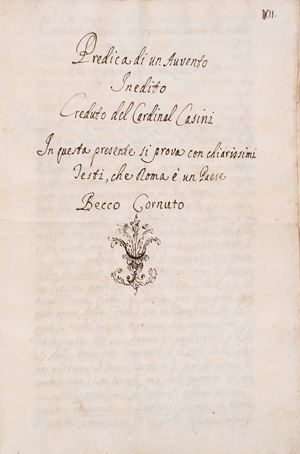 XII.
Predica di un Avvento
Inedito
Creduto del Cardinal Casini
In questa presente si prova con chiarissimi
Testi, che Roma è un Paese
Becco Cornuto